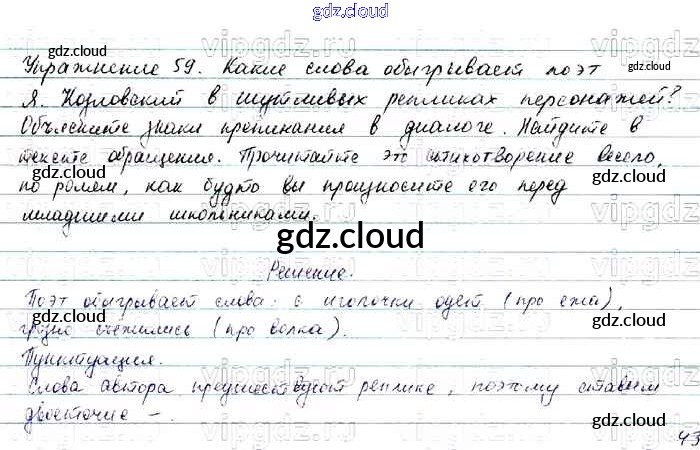 gdz.cloud
Упражнение 59. Какие слова обыгрывает поэт
Я. Козловский в шутливых репликах персонажей?
Объясните знаки препинания в диалоге. Найдите в
тексте обращения. Прочитайте это стихотворение весело,
по ролям, как будто вы произносите его перед
младшими школьниками.
gdz.cloud
Решение.
Поэт обыгрывает слова: с иголочки одет (про ежа),
грозно съежились (про волка).
Пунктуация.
Слова автора предшествуют реплике, поэтому ставим
двоеточие –.
43